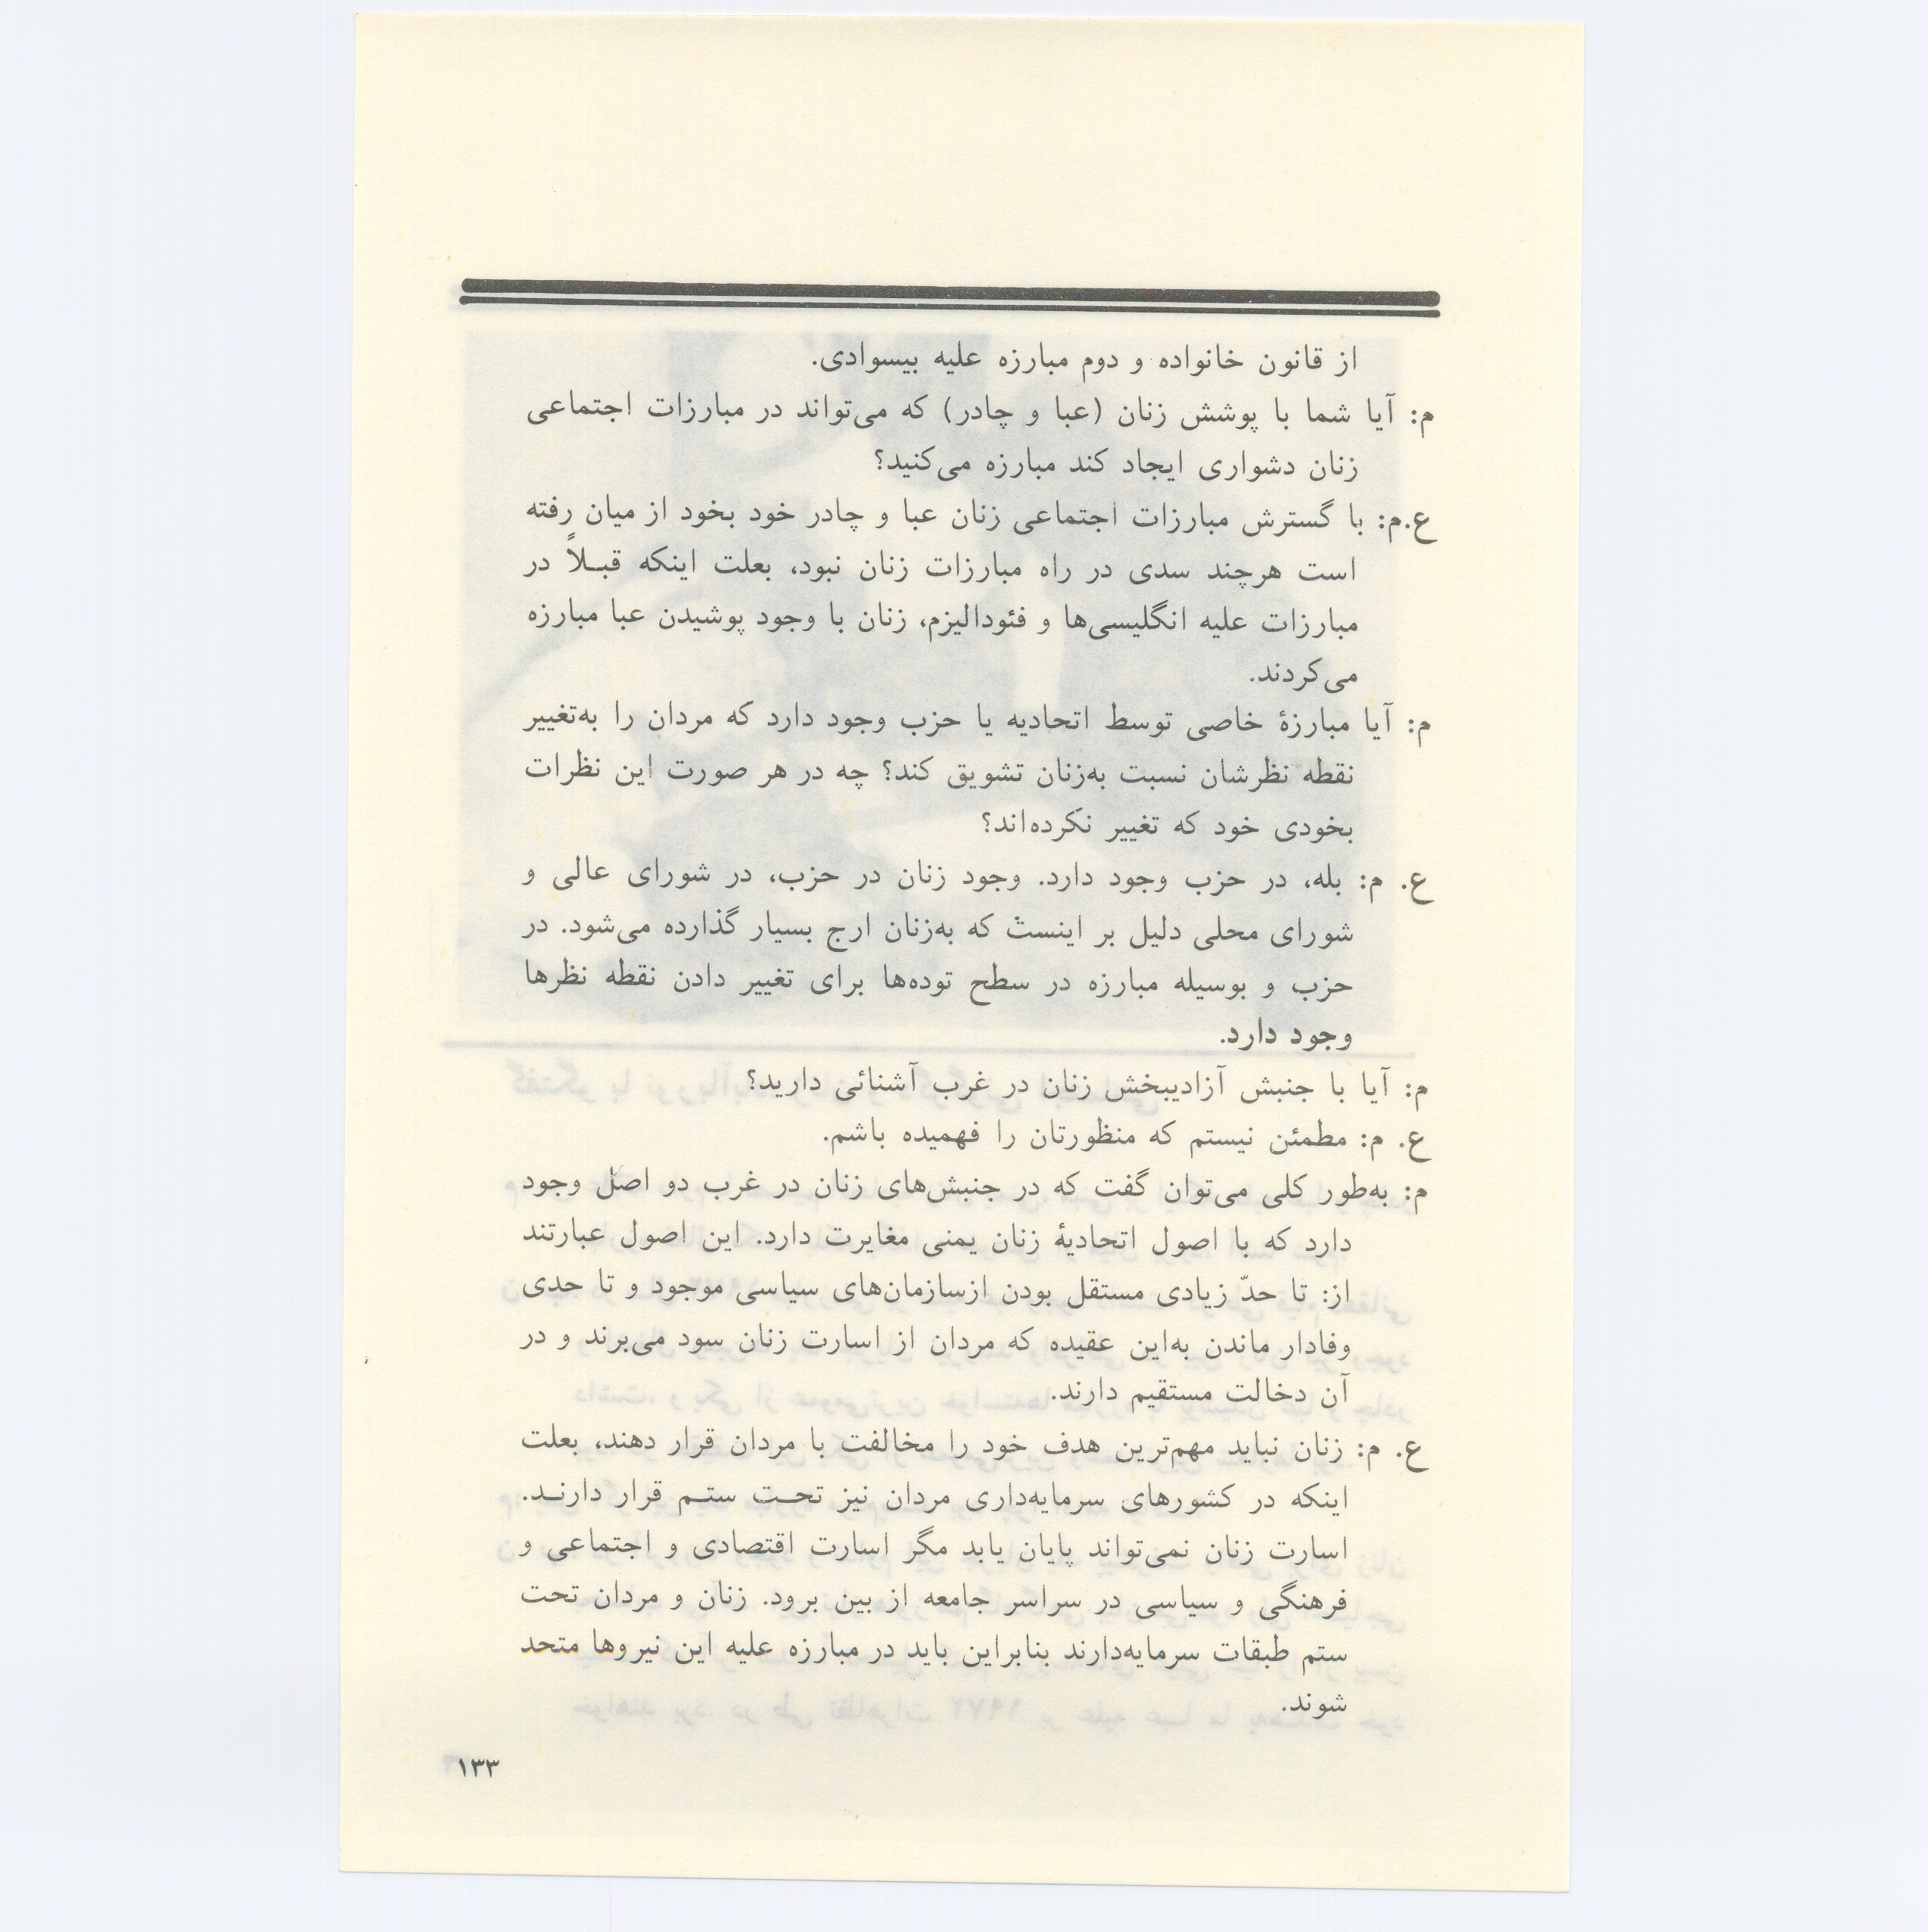 از قانون خانواده و دوم مبارزه علیه بیسوادی.
م: آیا شما با پوشش زنان (عبا و چادر) که می‌تواند در مبارزات اجتماعی
زنان دشواری ایجاد کند مبارزه می‌کنید؟
ع.م: با گسترش مبارزات اجتماعی زنان عبا و چادر خود بخود از میان رفته
است هرچند سدی در راه مبارزات زنان نبود، بعلت اینکه قبـلاً در
مبارزات علیه انگلیسی‌ها و فئودالیزم، زنان با وجود پوشیدن عبا مبارزه
می‌کردند.
م: آیا مبارزهٔ خاصی توسط اتحادیه یا حزب وجود دارد که مردان را به‌تغییر
نقطه نظرشان نسبت به‌زنان تشویق کند؟ چه در هر صورت این نظرات
بخودی خود که تغییر نکرده‌اند؟
ع. م: بله، در حزب وجود دارد. وجود زنان در حزب، در شورای عالی و
شورای محلی دلیل بر اینست که به‌زنان ارج بسیار گذارده می‌شود. در
حزب و بوسیله مبارزه در سطح توده‌ها برای تغییر دادن نقطه نظرها
وجود دارد.
م: آیا با جنبش آزادیبخش زنان در غرب آشنائی دارید؟
ع. م: مطمئن نیستم که منظورتان را فهمیده باشم.
م: به‌طور کلی می‌توان گفت که در جنبش‌های زنان در غرب دو اصل وجود
دارد که با اصول اتحادیهٔ زنان یمنی مغایرت دارد. این اصول عبارتند
از: تا حدّ زیادی مستقل بودن ازسازمان‌های سیاسی موجود و تا حدی
وفادار ماندن به‌این عقیده که مردان از اسارت زنان سود می‌برند و در
آن دخالت مستقیم دارند.
ع. م: زنان نباید مهم‌ترین هدف خود را مخالفت با مردان قرار دهند، بعلت
اینکه در کشورهای سرمایه‌داری مردان نیز تحـت ستـم قرار دارنـد.
اسارت زنان نمی‌تواند پایان یابد مگر اسارت اقتصادی و اجتماعی و
فرهنگی و سیاسی در سراسر جامعه از بین برود. زنان و مردان تحت
ستم طبقات سرمایه‌دارند بنابراین باید در مبارزه علیه این نیروها متحد
شوند.
۱۳۳